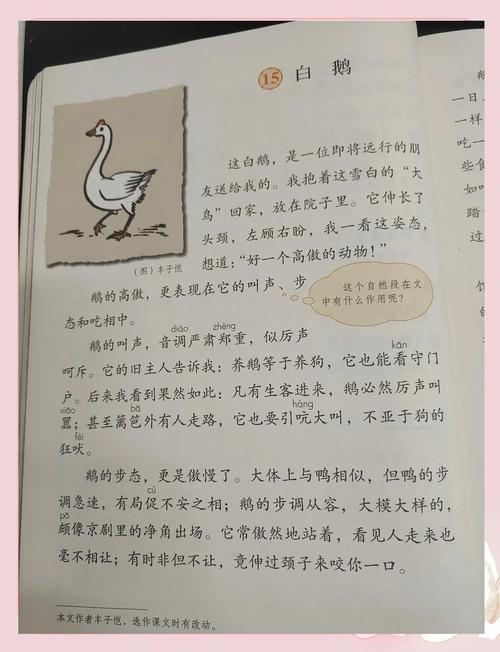 15 白 鹅
这白鹅，是一位即将远行的朋
友送给我的。我抱着这雪白的“大
鸟”回家，放在院子里。它伸长了
头颈，左顾右盼，我一看这姿态，
想道：“好一个高傲的动物！”
（图）丰子恺
鹅的高傲，更表现在它的叫声、步
态和吃相中。
这个自然段在文
中有什么作用呢？
diào zhèng
鹅的叫声，音调严肃郑重，似厉声
kān
呵斥。它的旧主人告诉我：养鹅等于养狗，它也能看守门
户。后来我看到果然如此：凡有生客进来，鹅必然厉声叫
xiāo bā háng
嚣；甚至篱笆外有人走路，它也要引吭大叫，不亚于狗的
fèi
狂吠。
鹅的步态，更是傲慢了。大体上与鸭相似，但鸭的步
cù
调急速，有局促不安之相；鹅的步调从容，大模大样的，
pō
颇像京剧里的净角出场。它常傲然地站着，看见人走来也
毫不相让；有时非但不让，竟伸过颈子来咬你一口。
本文作者丰子恺，选作课文时有改动。
鹅
一日
一样
吃一
些食
如呫
踏一
过来
饭